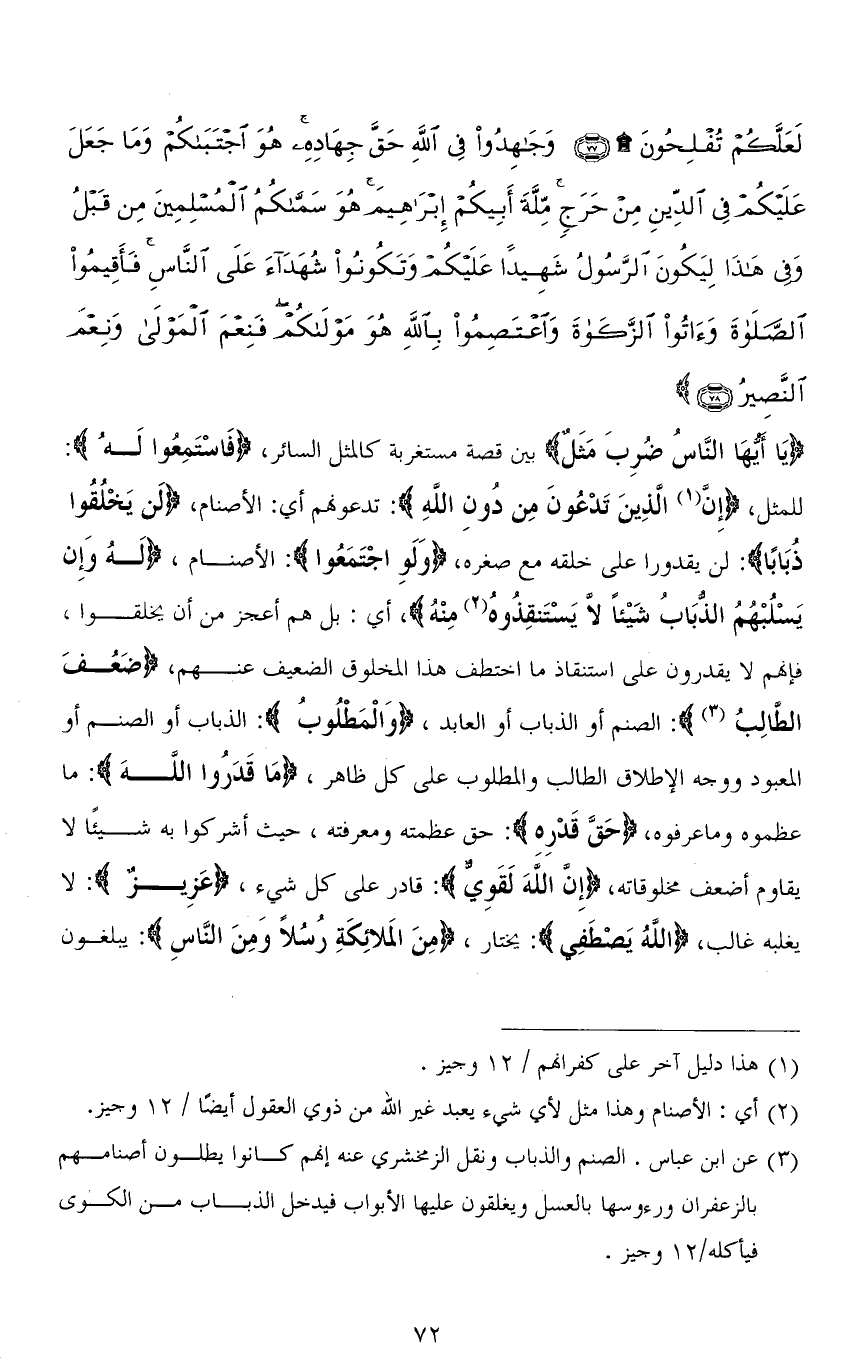 لَعَلَّكُمْ تُفْلِحُونَ ۩ ﴿٧٧﴾ وَجَٰهِدُوا۟ فِى ٱللَّهِ حَقَّ جِهَادِهِۦ ۚ هُوَ ٱجْتَبَىٰكُمْ وَمَا جَعَلَ
عَلَيْكُمْ فِى ٱلدِّينِ مِنْ حَرَجٍ ۚ مِّلَّةَ أَبِيكُمْ إِبْرَٰهِيمَ ۚ هُوَ سَمَّىٰكُمُ ٱلْمُسْلِمِينَ مِن قَبْلُ
وَفِى هَٰذَا لِيَكُونَ ٱلرَّسُولُ شَهِيدًا عَلَيْكُمْ وَتَكُونُوا۟ شُهَدَآءَ عَلَى ٱلنَّاسِ ۚ فَأَقِيمُوا۟
ٱلصَّلَوٰةَ وَءَاتُوا۟ ٱلزَّكَوٰةَ وَٱعْتَصِمُوا۟ بِٱللَّهِ هُوَ مَوْلَىٰكُمْ ۖ فَنِعْمَ ٱلْمَوْلَىٰ وَنِعْمَ
ٱلنَّصِيرُ ﴿٧٨﴾ ﴾
﴿يَا أَيُّهَا النَّاسُ ضُرِبَ مَثَلٌ﴾ بين قصة مستغربة كالمثل السائر، ﴿فَاسْتَمِعُوا لَهُ ﴾:
للمثل، ﴿إِنَّ(١) الَّذِينَ تَدْعُونَ مِن دُونِ اللَّهِ ﴾: تدعونهم أي: الأصنام، ﴿لَن يَخْلُقُوا
ذُبَابًا﴾: لن يقدورا على خلقه مع صغره، ﴿وَلَوِ اجْتَمَعُوا ﴾: الأصنام ، ﴿لَهُ وَإِن
يَسْلُبْهُمُ الذُّبَابُ شَيْئاً لاَّ يَسْتَنقِذُوهُ(٢) مِنْهُ﴾، أي : بل هم أعجز من أن يخلقوا ،
فإنهم لا يقدرون على استنقاذ ما اختطف هذا المخلوق الضعيف عنهم، ﴿ضَعُفَ
الطَّالِبُ (٣) ﴾: الصنم أو الذباب أو العابد ، ﴿وَالْمَطْلُوبُ ﴾: الذباب أو الصنم أو
المعبود ووجه الإطلاق الطالب والمطلوب على كل ظاهر ، ﴿مَا قَدَرُوا اللَّهَ ﴾: ما
عظموه وماعرفوه، ﴿حَقَّ قَدْرِهِ ﴾: حق عظمته ومعرفته ، حيث أشركوا به شيئًا لا
يقاوم أضعف مخلوقاته، ﴿إِنَّ اللَّهَ لَقَوِيٌّ ﴾: قادر على كل شيء ، ﴿عَزِيزٌ ﴾: لا
يغلبه غالب، ﴿اللَّهُ يَصْطَفِي ﴾: يختار ، ﴿مِنَ المَلائِكَةِ رُسُلاً وَمِنَ النَّاسِ ﴾: يبلغون
(١) هذا دليل آخر على كفرانهم / ١٢ وجيز .
(٢) أي : الأصنام وهذا مثل لأي شيء يعبد غير الله من ذوي العقول أيضًا / ١٢ وجيز.
(٣) عن ابن عباس . الصنم والذباب ونقل الزمخشري عنه إنهم كانوا يطلون أصنامهم
بالزعفران ورءوسها بالعسل ويغلقون عليها الأبواب فيدخل الذباب من الكوى
فيأكله/١٢ وجيز .
٧٢